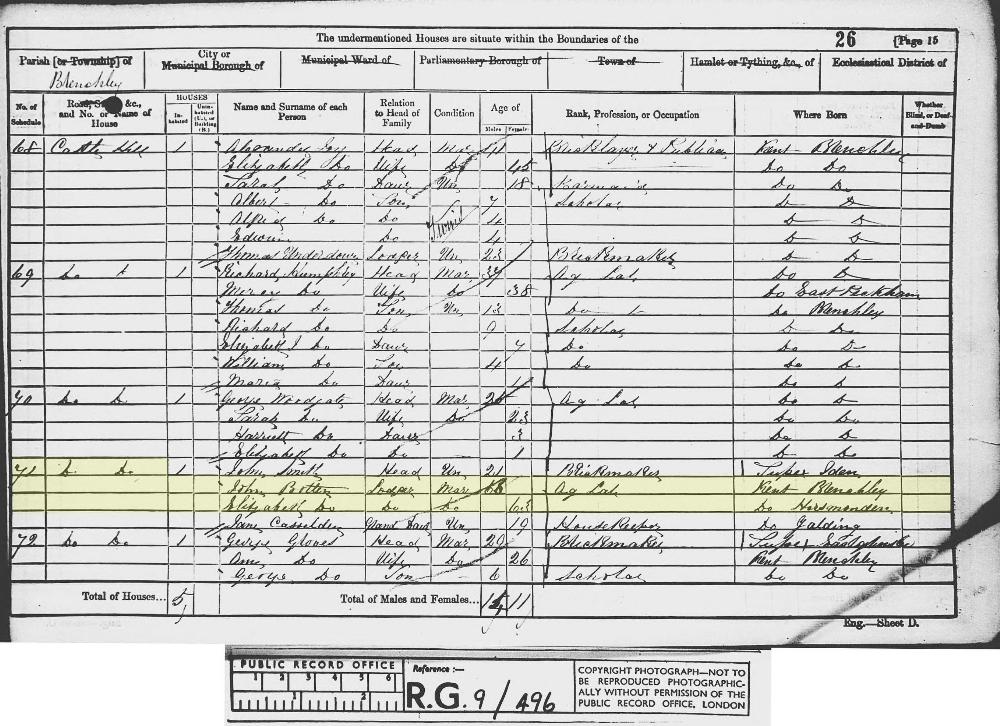 The undermentioned Houses are situate within the Boundaries of the 26 [Page 15
Parish [or Township] of Brenchley City or Municipal Borough of Municipal Ward of Parliamentary Borough of Town of Hamlet or Tything, &c., of Ecclesiastical District of
No. of Schedule Road, &c., and No. or Name of House HOUSES Inhabited Uninhabited (U.), or Building (B.) Name and Surname of each Person Relation to Head of Family Condition Age of Males Females Rank, Profession, or Occupation Where Born Whether Blind, or Deaf-and-Dumb
68 Hill 1 Alexander Head Mar 41 Bricklayer & Publican Kent Brenchley
Elizabeth Do Wife Do 45 Do Do
Sarah Do Daur Un 18 Barmaid Do Do
Albert Do Son 7 Scholar D D
Alfred Do Do Twins 4 D D
Edwin Do 4 D D
Thomas Underdown Lodger Un 23 Brickmaker D D
69 Do 1 Richard Humphrey Head Mar 37 Ag Lab Do D
Do Wife Do 38 Do East Peckham
Thomas Do Son Un 13 Do Do Brenchley
Richard Do Do 9 Scholar D Do
Elizabeth J Do Daur 7 Do Do D
William Do Son 4 Do Do Do
Maria Do Daur 1 Do D
70 Do D 1 George Woodgate Head Mar 26 Ag Lab Do D
Sarah Do Wife Do 23 Do Do
Harriett Do Daur 3 Do D
Elizabeth Do Do 1 D Do
71 D Do 1 John Smith Head Un 21 Brickmaker Iden
John Botten Lodger Mar Ag Lab Kent Brenchley
Elizabeth Do Do Do 63 Do Horsmonden
Jane Grand Daur Un 19 Housekeeper Do Yalding
72 Do Do 1 George Gloves Head Mar 29 Brickmaker
Ann Do Wife Do 26 Kent Brenchley
George Do Son 6 Scholar Do Do
Total of Houses... 5 Total of Males and Females... 11
Eng.—Sheet D.
PUBLIC RECORD OFFICE
1 2 3 4 5 6
1 2
Reference:—
R.G. 9/496
COPYRIGHT PHOTOGRAPH—NOT TO
BE REPRODUCED PHOTOGRAPHIC-
ALLY WITHOUT PERMISSION OF THE
PUBLIC RECORD OFFICE, LONDON